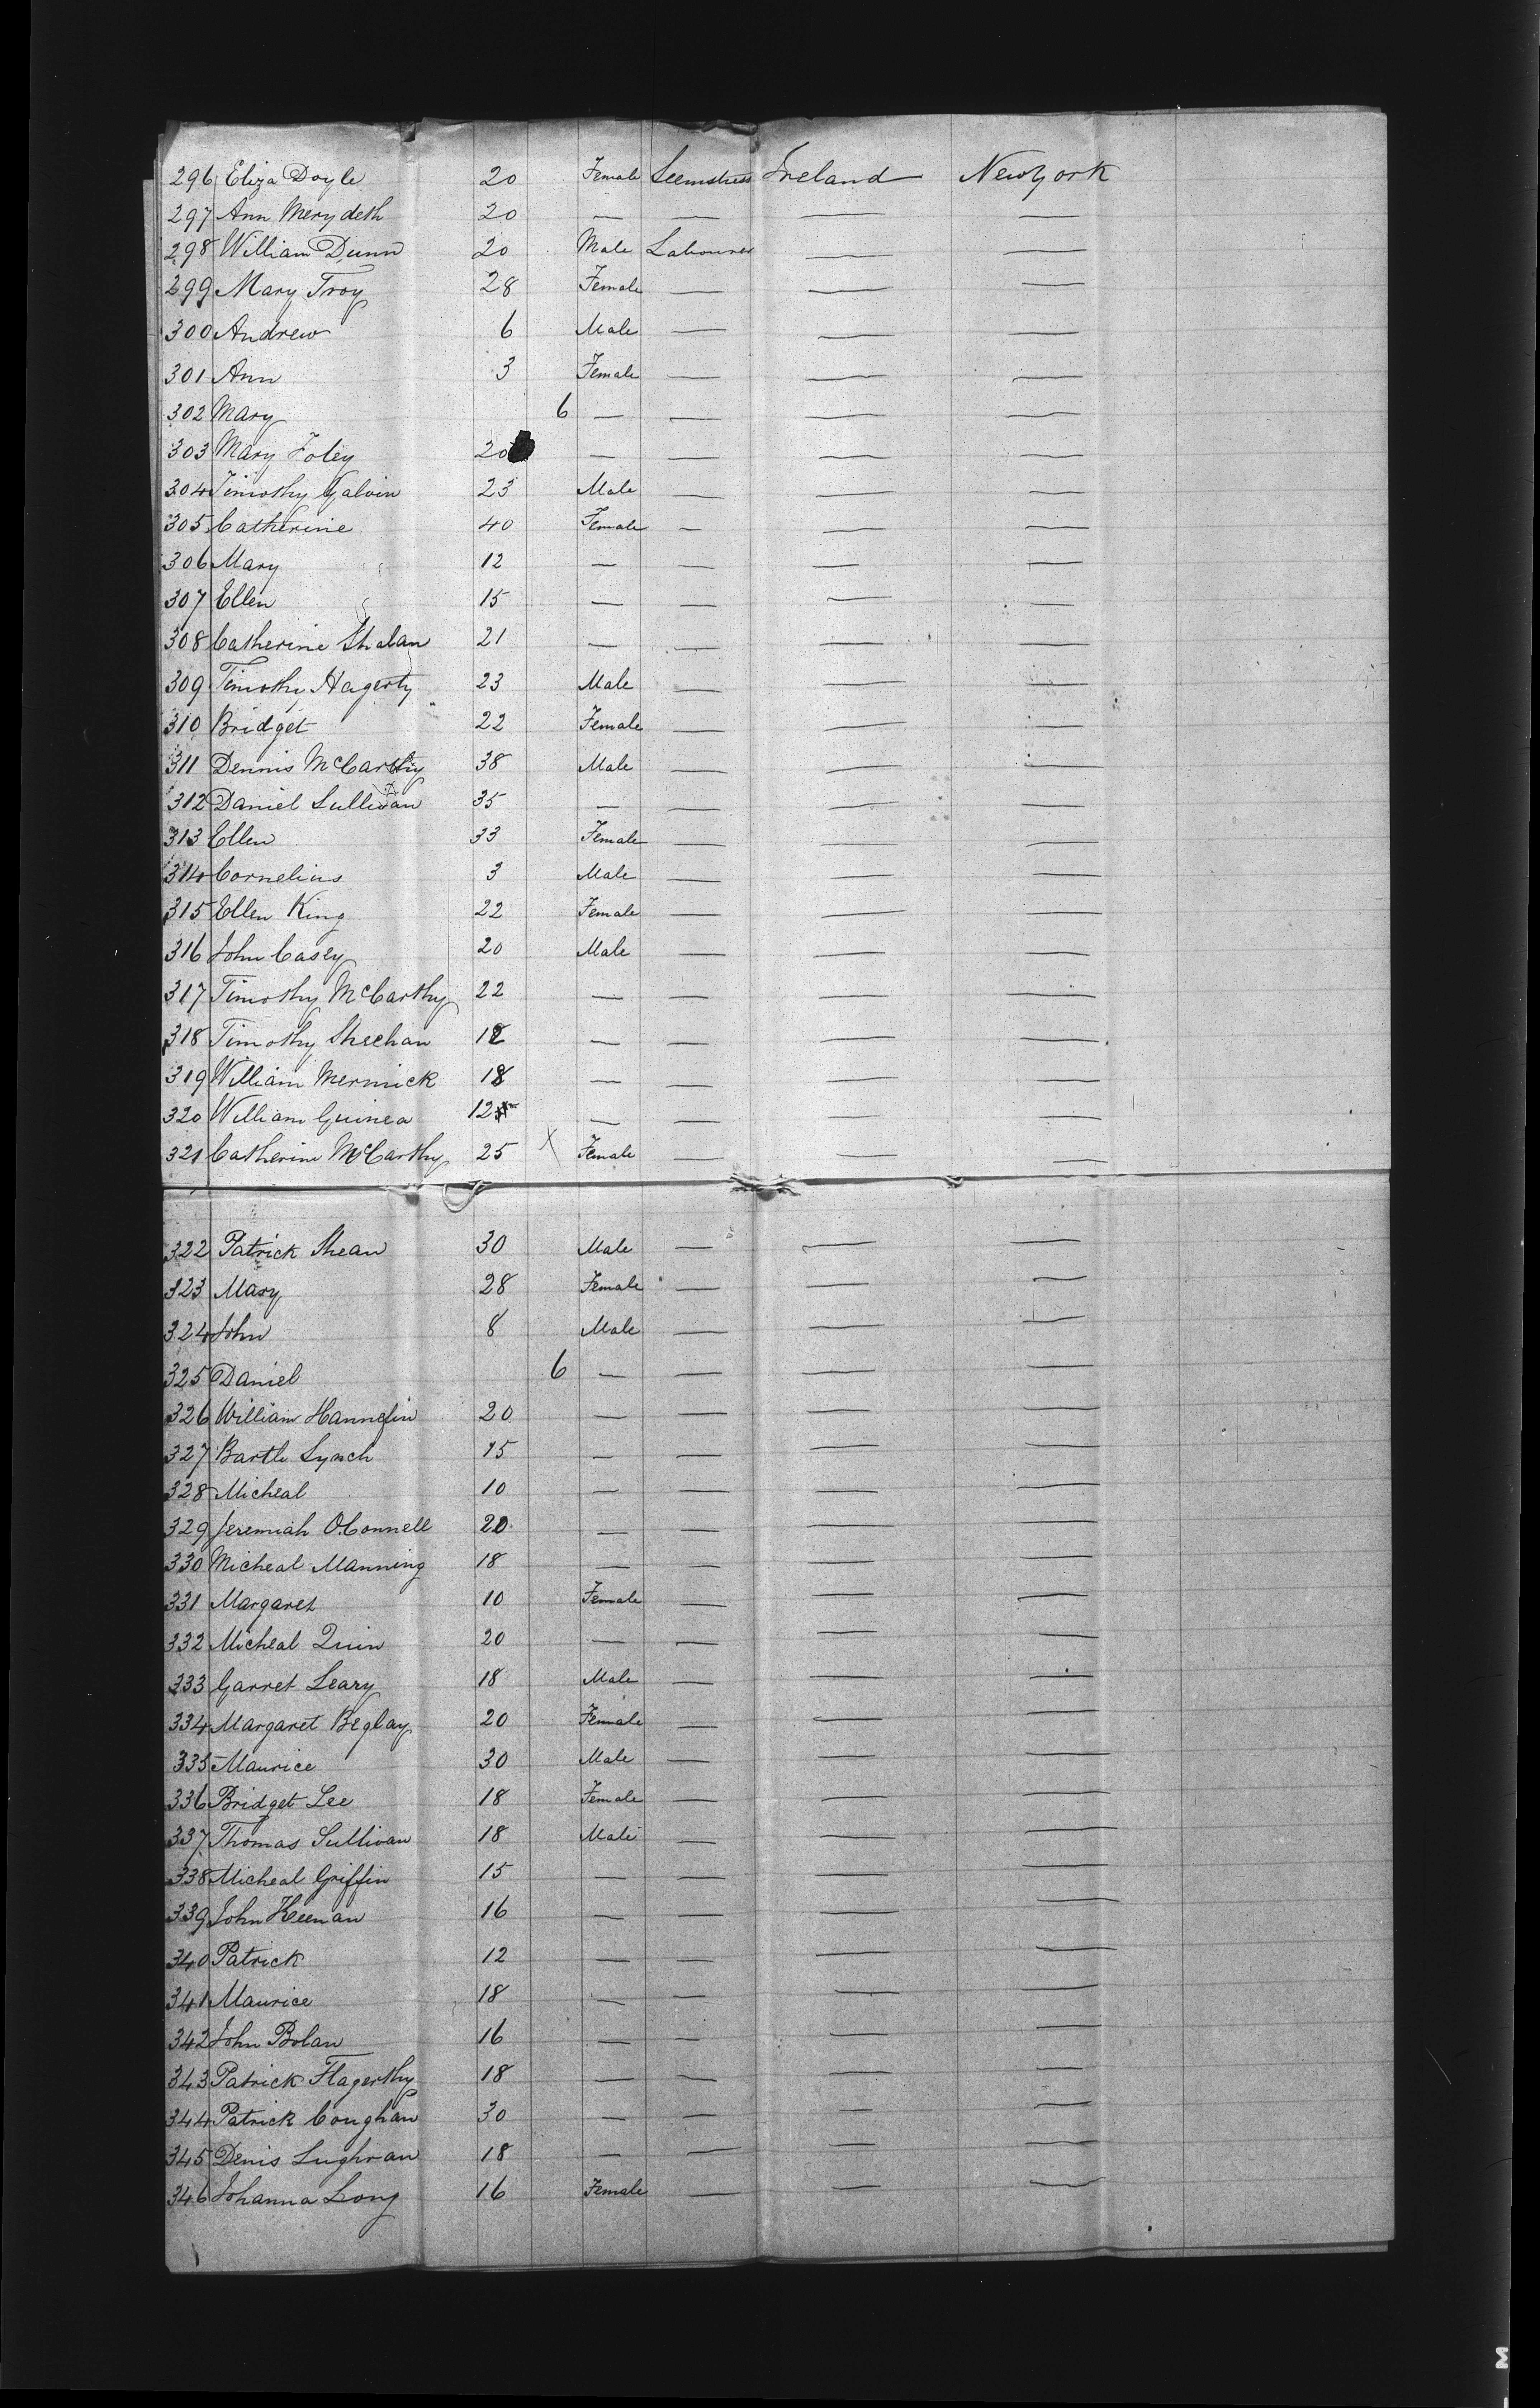 296 Eliza Doyle 20 Female Seemstress Ireland New York
297 Ann Merydeth 20 — — — —
298 William Dunn 20 Male Labourer — —
299 Mary Troy 28 Female — — —
300 Andrew 6 Male — — —
301 Ann 3 Female — — —
302 Mary 6 — — — —
303 Mary Foley 20 — — — —
304 Timothy Galvin 23 Male — — —
305 Catherine 40 Female — — —
306 Mary 12 — — — —
307 Ellen 15 — — — —
308 Catherine 21 — — — —
309 Timothy Hagerty 23 Male — — —
310 Bridget 22 Female — — —
311 Dennis McCarthy 38 Male — — —
312 Daniel Sullivan 35 — — — —
313 Ellen 33 Female — — —
314 Cornelius 3 Male — — —
315 Ellen King 22 Female — — —
316 John Casey 20 Male — — —
317 Timothy McCarthy 22 — — — —
318 Timothy Sheehan — — — —
319 William Mernick 18 — — — —
320 William Guinea 12 — — — —
321 Catherine McCarthy 25 X Female — — —
322 Patrick Shean 30 Male — — —
323 Mary 28 Female — — —
324 John 8 Male — — —
325 Daniel 6 — — — —
326 William Hannefin 20 — — — —
327 Bartle Lynch 15 — — — —
328 Micheal 10 — — — —
329 Jeremiah O.Connell 20 — — — —
330 Micheal Manning 18 — — — —
331 Margaret 10 Female — — —
332 Micheal Quin 20 — — — —
333 Garret Leary 18 Male — — —
334 Margaret Beglay 20 Female — — —
335 Maurice 30 Male — — —
336 Bridget Lee 18 Female — — —
337 Thomas Sullivan 18 Male — — —
338 Micheal Griffin 15 — — — —
339 John Keenan 16 — — — —
340 Patrick 12 — — — —
341 Maurice 18 — — — —
342 John Bolan 16 — — — —
343 Patrick Hagerthy 18 — — — —
344 Patrick Coughan 30 — — — —
345 Denis Lughran 18 — — — —
346 Johanna Long 16 Female — — —